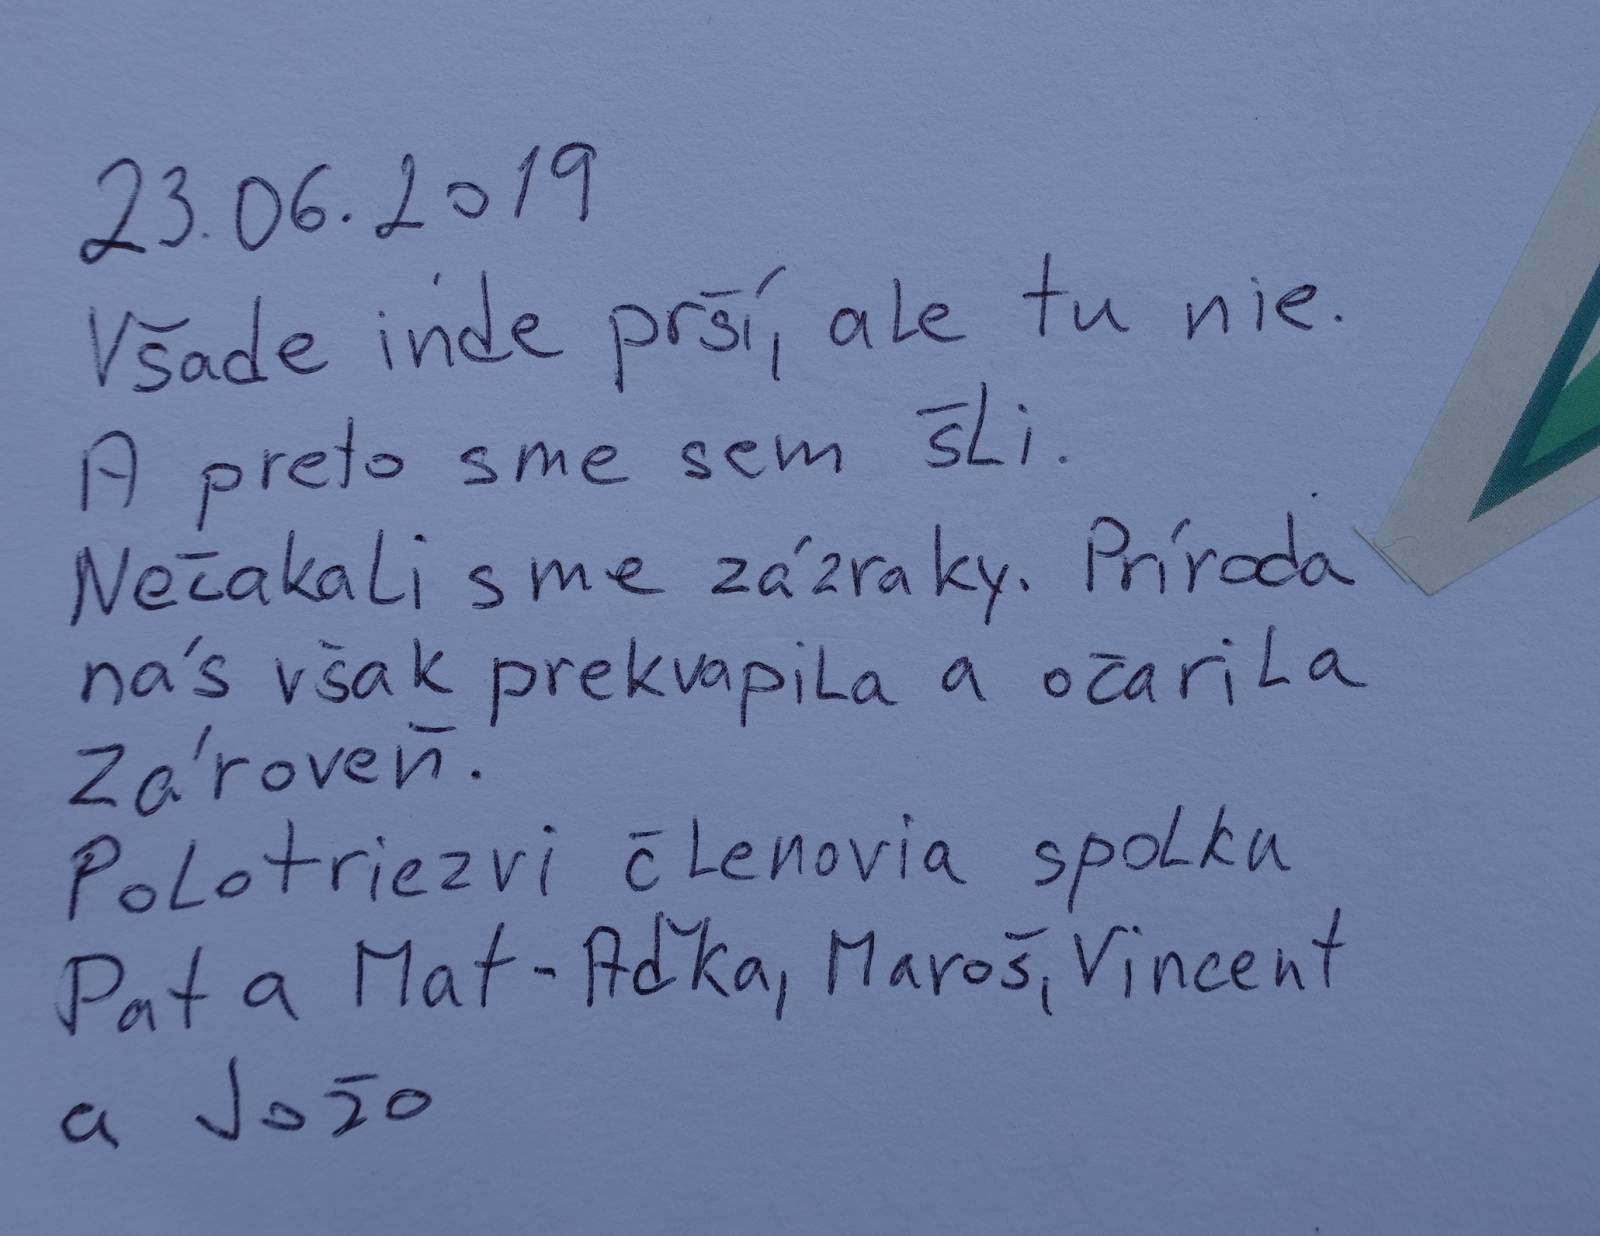 23.06.2019
Všade inde prší, ale tu nie.
A preto sme sem šli.
Nečakali sme zázraky. Príroda
nás však prekvapila a očarila
zároveň.
Polotriezvi členovia spolku
Pat a Mat - Aďka, Maroš, Vincent
a Jožo